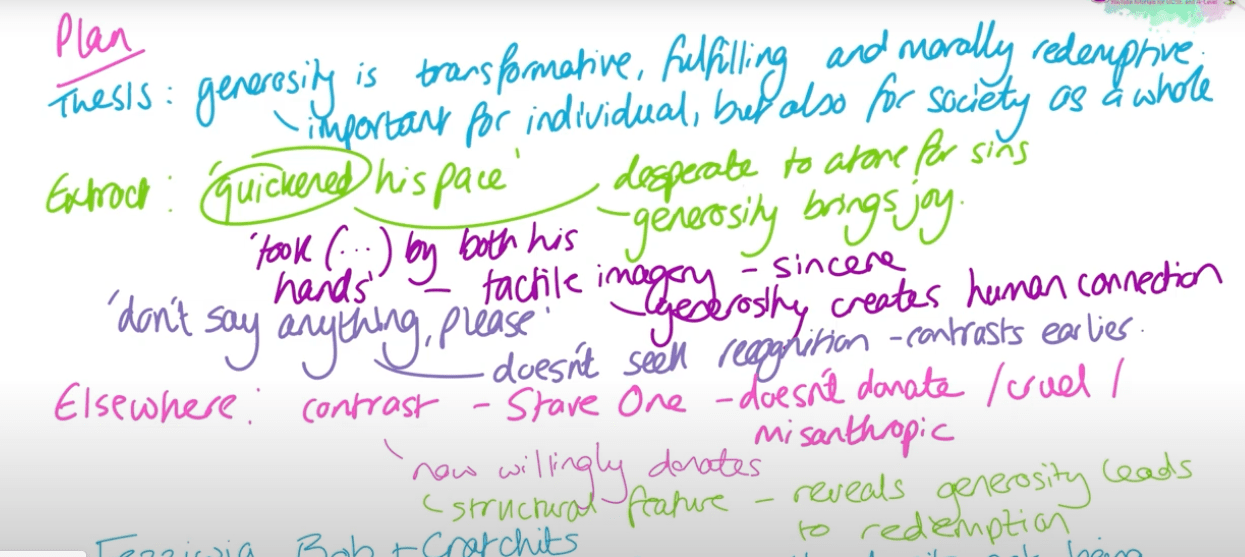 YouTube tutorials for GCSE and A-Level
Plan
Thesis: generosity is transformative, fulfilling and morally redemptive.
important for individual, but also for society as a whole
Extract: 'quickened his pace' desperate to atone for sins
generosity brings joy.
'took (...) by both his
hands' - tactile imagery - sincere
generosity creates human connection
'don't say anything, please'
doesn't seek recognition - contrasts earlier.
Elsewhere: contrast - Stave One - doesn't donate / cruel /
misanthropic
now willingly donates
structural feature - reveals generosity leads
to redemption
Bob + Cratchits
being